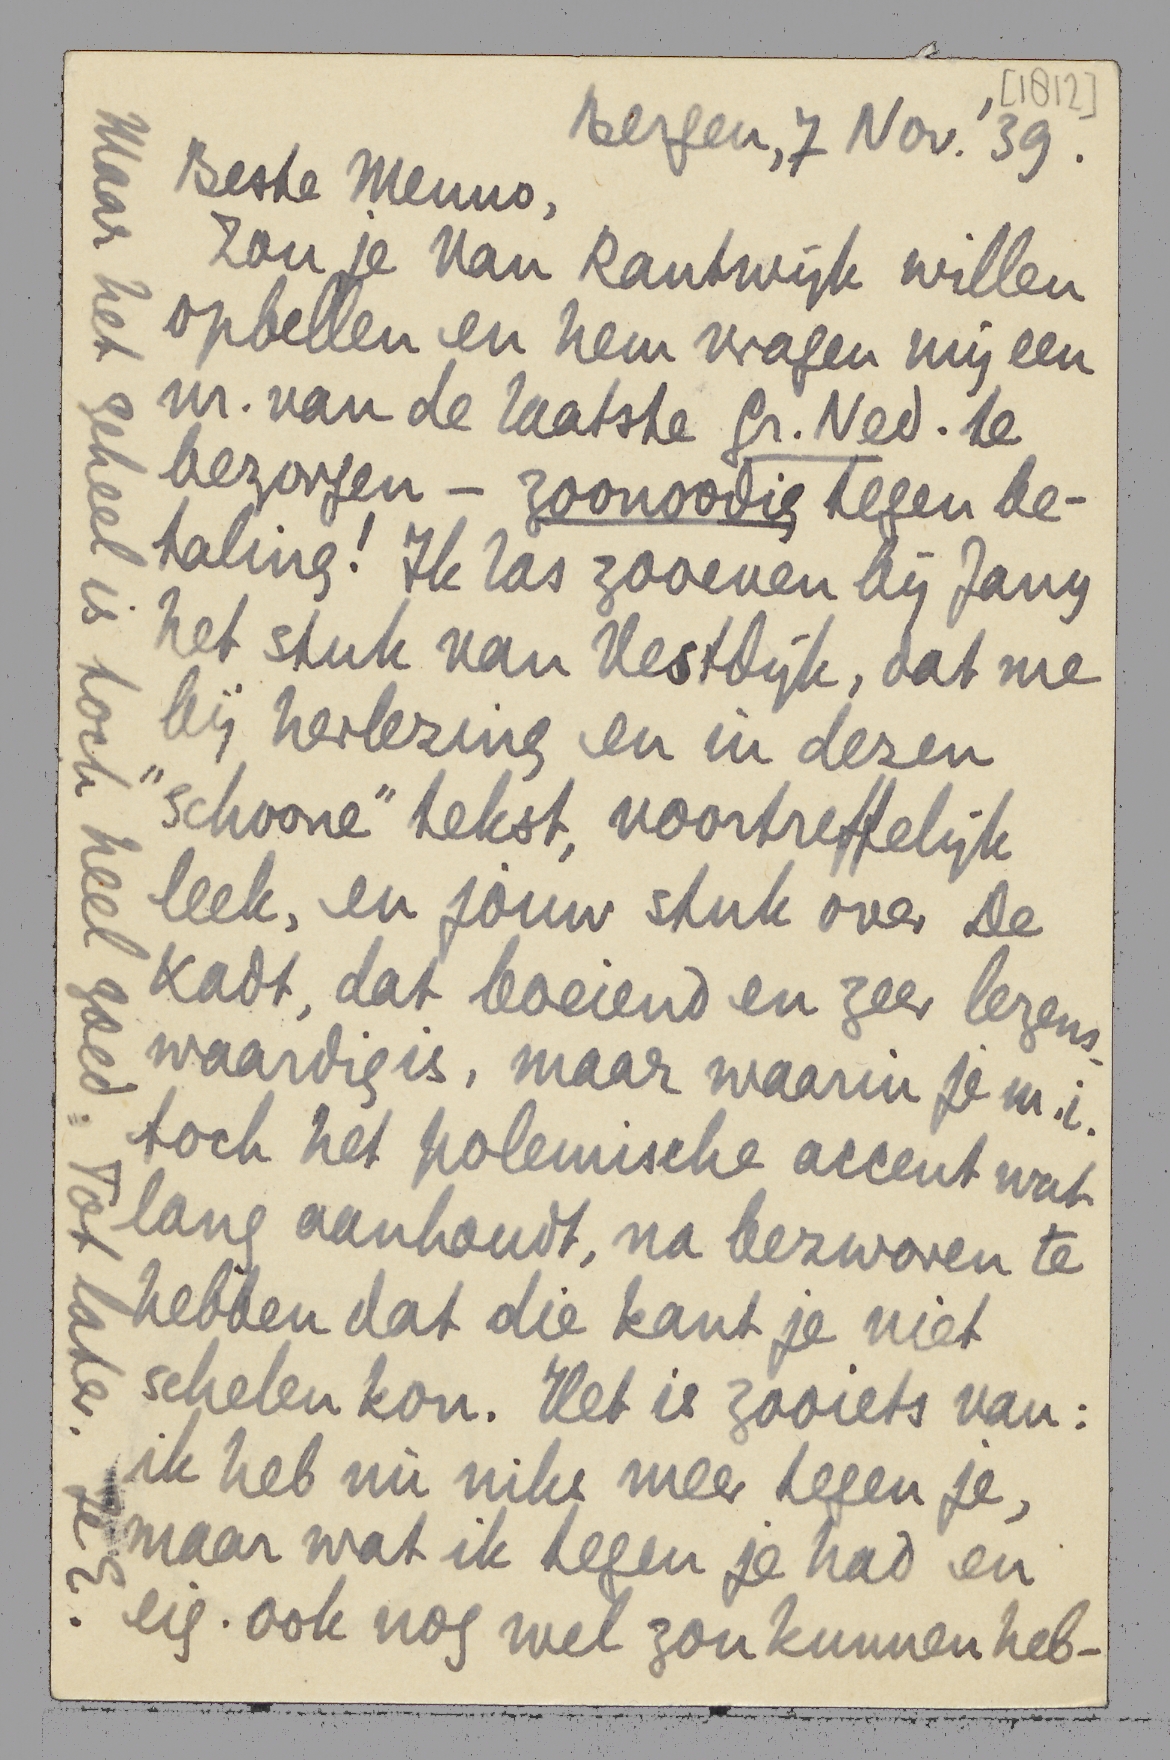 [1812]
Bergen, 7 Nov. '39.
Beste Menno,
Zou je Van Kantwijk willen
opbellen en hem vragen mij een
nr. van de laatste Gr. Ned. te
bezorgen – zoonoodig tegen be-
taling! Ik las zooeven bij Jany
het stuk van Vestdijk, dat me
bij herlezing en in dezen
"schoone" tekst, voortreffelijk
leek, en jouw stuk over De
Kadt, dat boeiend en zeer lezens-
waardig is, maar waarin je m.i.
toch het polemische accent wat
lang aanhoudt, na bezworen te
hebben dat die kant je niet
schelen kon. Het is zooiets van:
ik heb nù niks meer tegen je,
maar wat ik tegen je had en
eig. ook nog wel zou kunnen heb-
Maar het geheel is toch heel goed. Tot later. Je E.